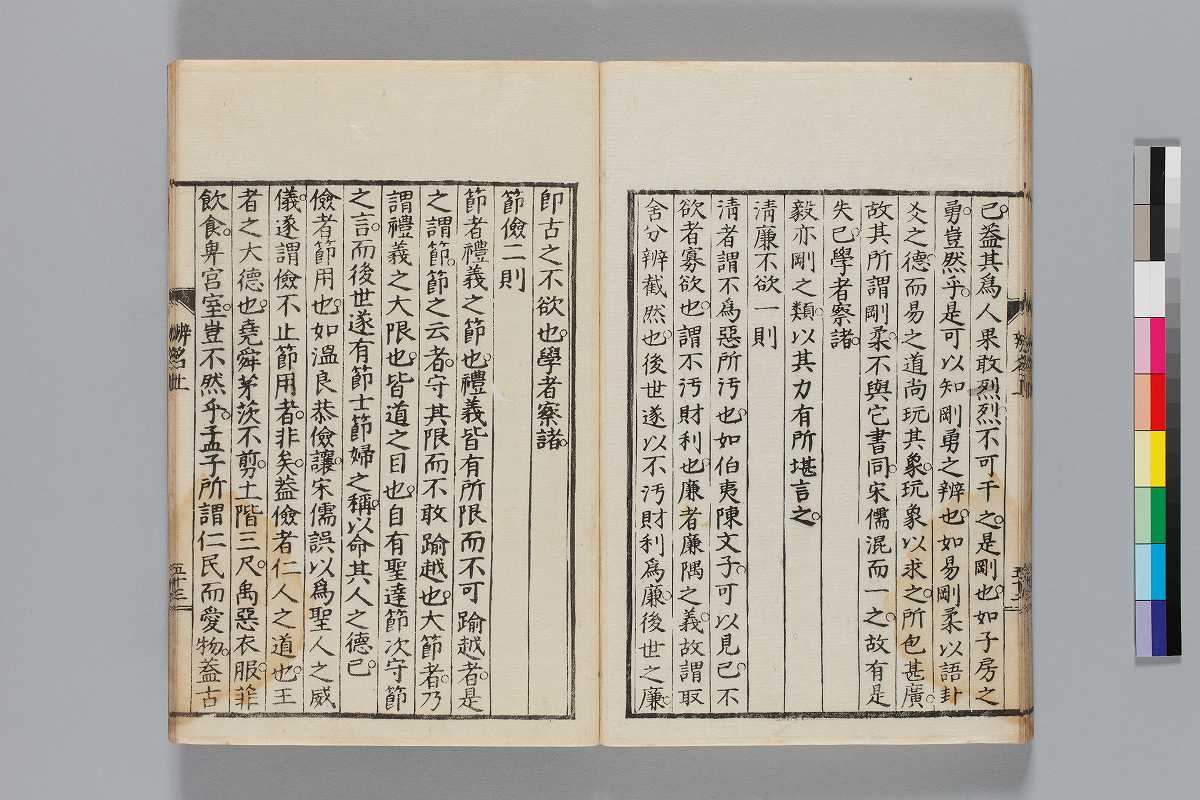 已。蓋其爲人果敢烈烈不可干之。是剛也。如子房之
勇。豈然乎。是可以知剛勇之辨也。如易剛柔以語卦
爻之德。而易之道尚玩其象。玩象以求之。所包甚廣。
故其所謂剛柔。不與它書同。宋儒混而一之。故有是
失已。學者察諸。
毅亦剛之類。以其力有所堪言之。
淸廉不欲一則
淸者謂不爲惡所汚也。如伯夷陳文子。可以見已。不
欲者寡欲也。謂不汚財利也。廉者廉隅之義。故謂取
舍分辨截然也。後世遂以不汚財利爲廉。後世之廉。
卽古之不欲也。學者察諸。
節儉二則
節者禮義之節也。禮義皆有所限而不可踰越者。是
之謂節。節之云者。守其限而不敢踰越也。大節者。乃
謂禮義之大限也。皆道之目也。自有聖達節次守節
之言。而後世遂有節士節婦之稱。以命其人之德已。
儉者節用也。如溫良恭儉讓。宋儒誤以爲聖人之威
儀。遂謂儉不止節用者。非矣。蓋儉者仁人之道也。王
者之大德也。堯舜茅茨不剪。土階三尺。禹惡衣服。菲
飮食。卑宮室。豈不然乎。孟子所謂仁民而愛物。蓋古
辨名上
五十三